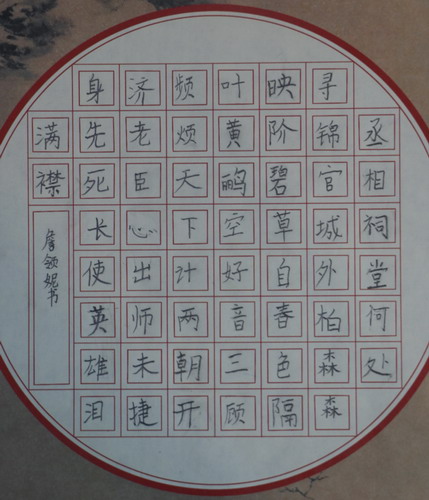 丞相祠堂何处
寻锦官城外柏森森
映阶碧草自春色隔
叶黄鹂空好音三顾
频烦天下计两朝开
济老臣心出师未捷
身先死长使英雄泪
满襟
詹领妮书